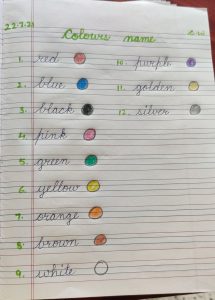 22-7-21
Colours name
1. red
2. blue
3. black
4. pink
5. green
6. yellow
7. orange
8. brown
9. white
10. purple
11. golden
12. silver